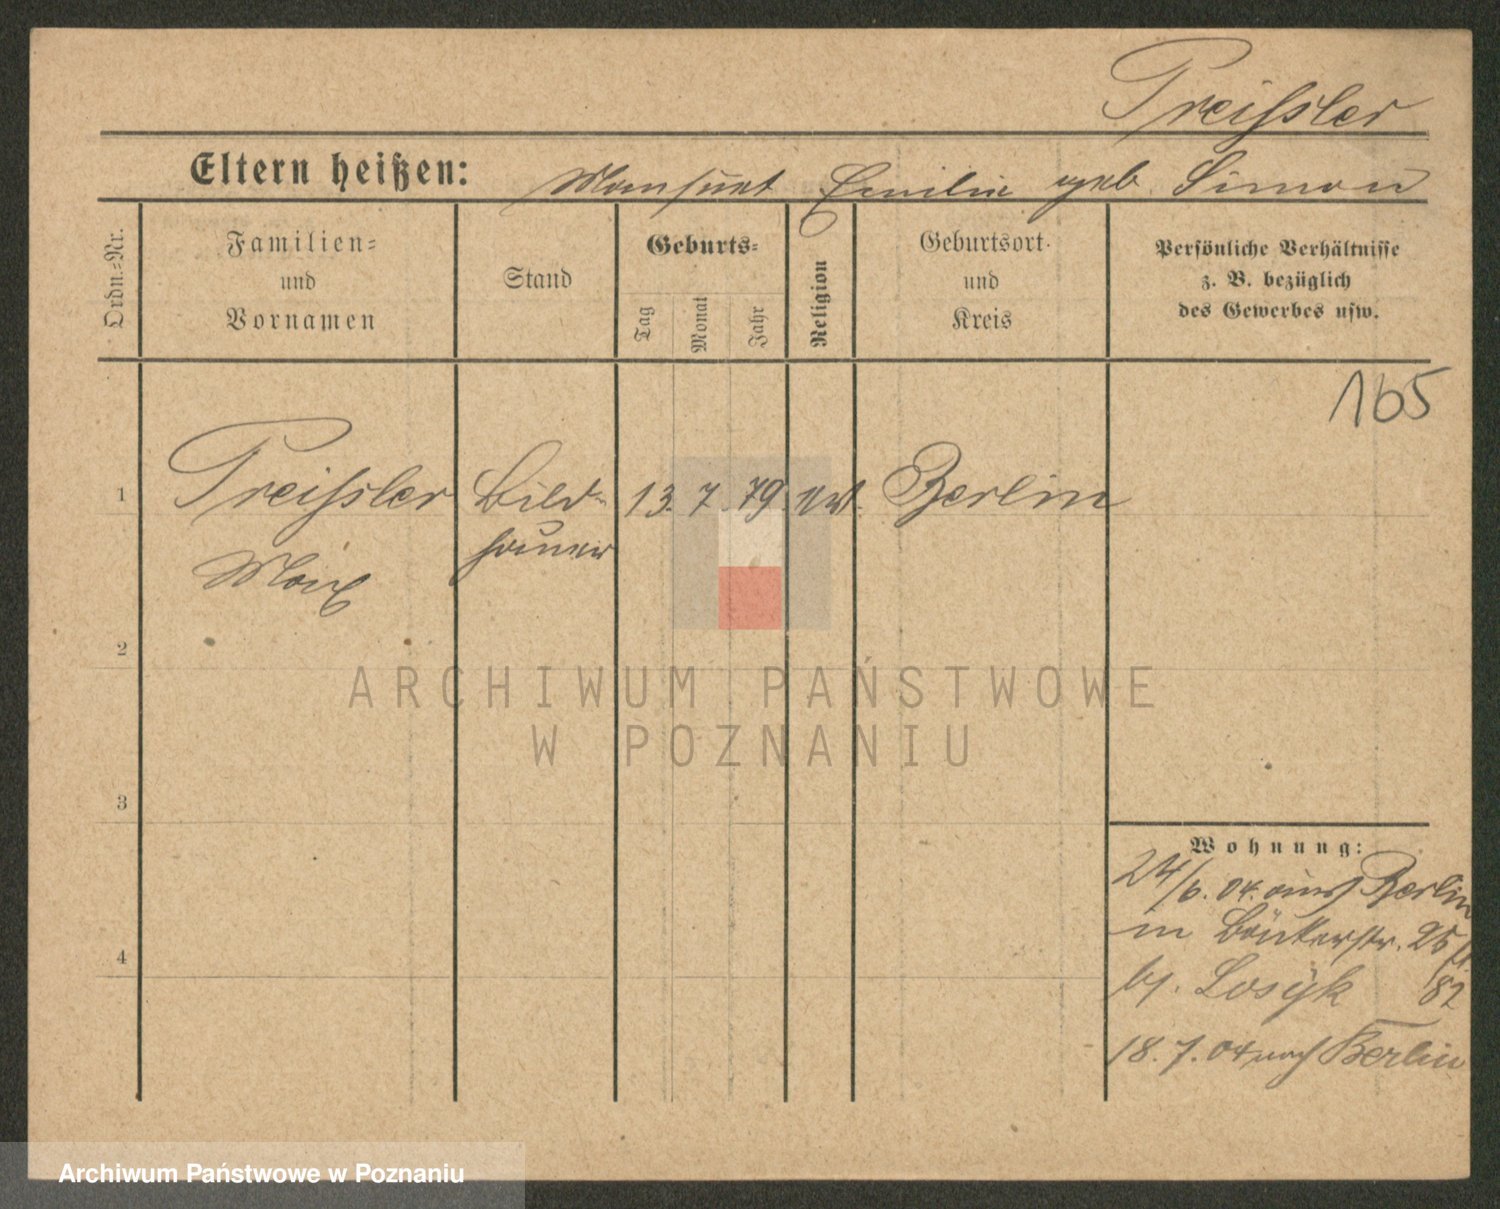 Preißler
Eltern heißen: Mansuet Emilie geb. Simon
Ordn.=Nr.
Familien=
und
Vornamen
Stand
Geburts=
Tag
Monat
Jahr
Religion
Geburtsort
und
Kreis
Persönliche Verhältnisse
z. B. bezüglich
des Gewerbes usw.
165
1 Preißler Bild= 13. 7. 79. Berlin
hauer
Max
2
3
4
Wohnung:
24/6. 04. aus Berlin
in Bäckerstr. 25
bj. Losyk 82
18. 7. 04 nach Berlin
ARCHIWUM PAŃSTWOWE
W POZNANIU
Archiwum Państwowe w Poznaniu